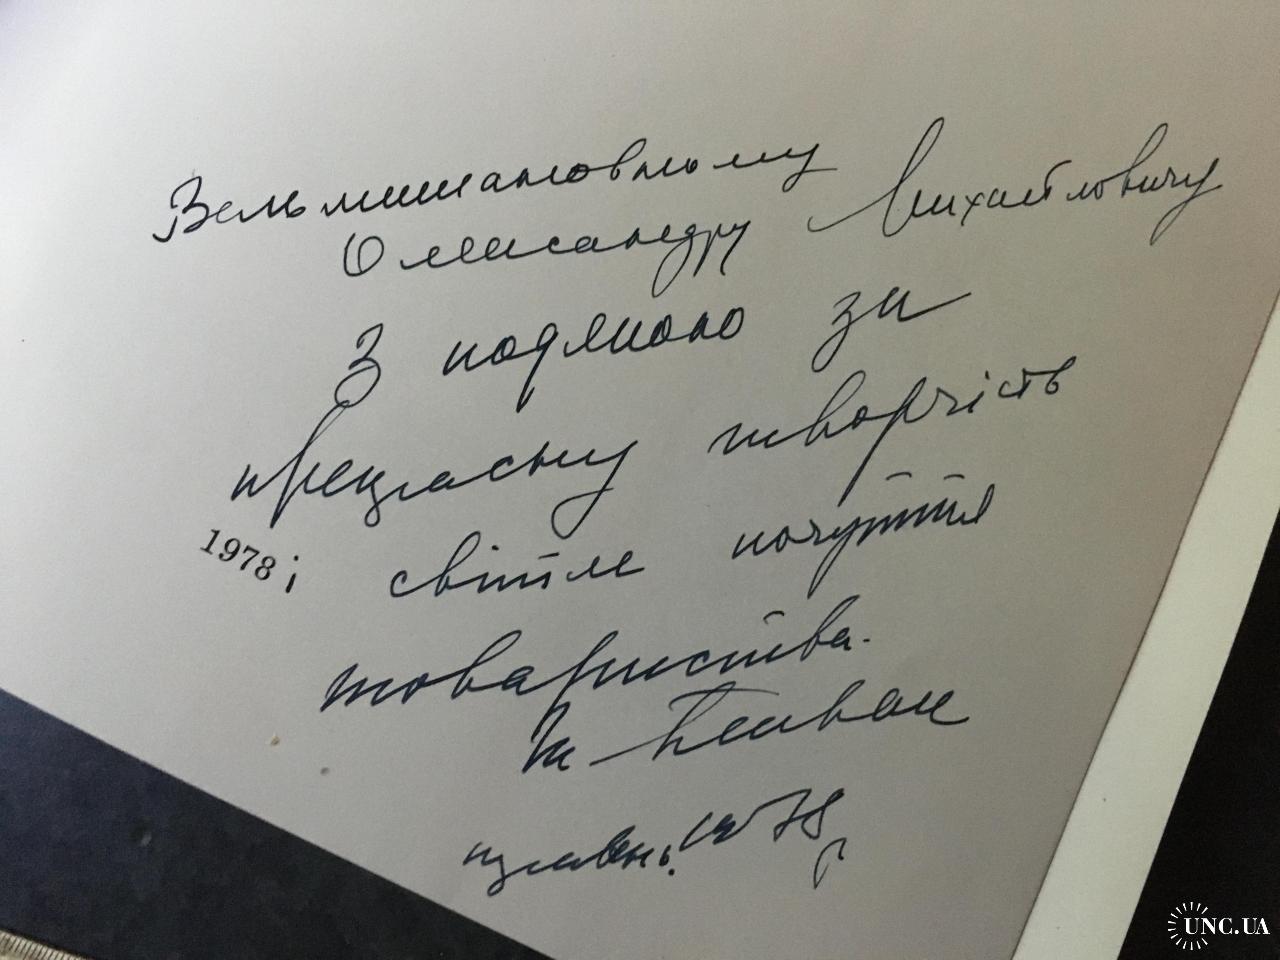 Вельмишановному
Олександру Михайловичу
З подякою за
прекрасну творчість
1978 і світле почуття
товариства.
1978 г
UNC.UA